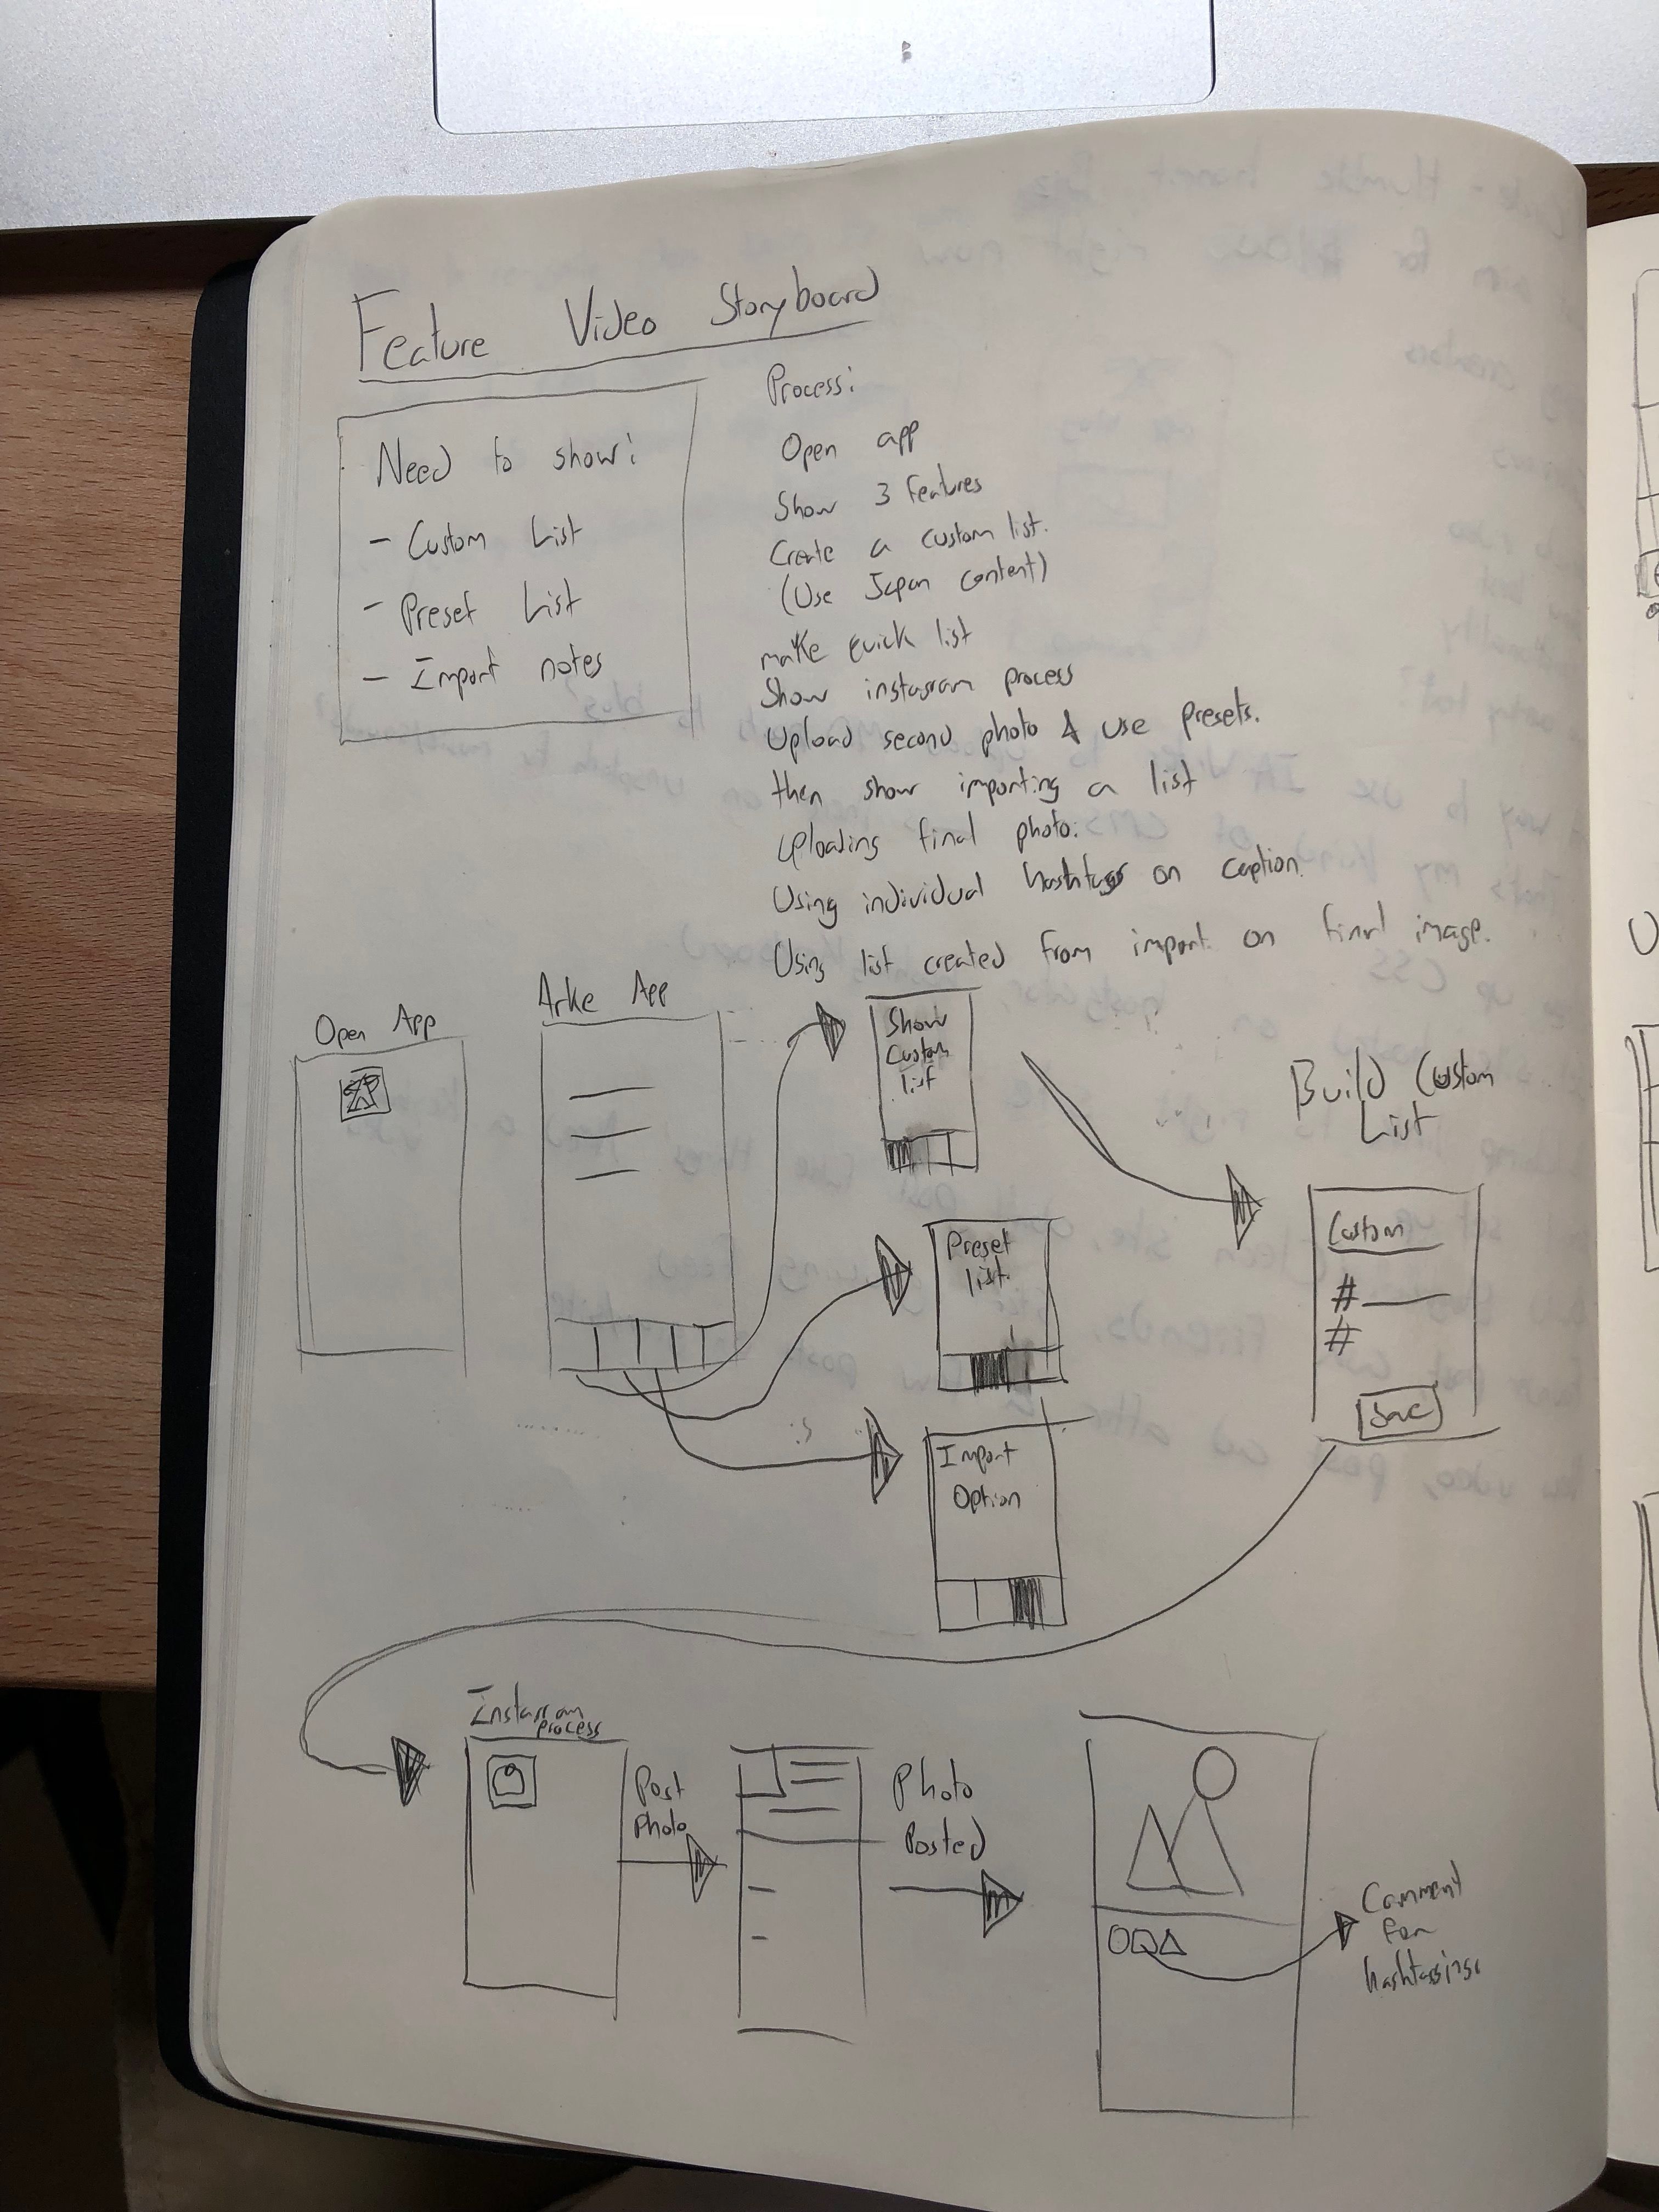 Feature Video Storyboard
Need to show:
- Custom List
- Preset List
- Import notes
Process:
Open app
Show 3 features
Create a custom list.
(Use Japan content)
make quick list
Show instagram process
Upload second photo & use presets.
then show importing a list
Uploading final photo:
Using individual hashtags on caption.
Using list created from import on final image.
Open App
Arke App
Show
Custom
list
Preset
list.
Import
Option
Build Custom
List
Custom
#
#
Save
Instagram
process
Post
Photo
Photo
Posted
Comment
for